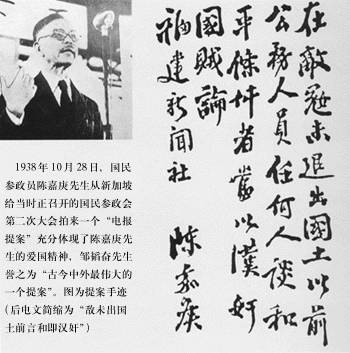 在敵寇未退出國土以前
公務人員任何人談和
平條件者當以漢奸
國賊論
福建新聞社 陳嘉庚
1938年10月28日、国民
参政员陈嘉庚先生从新加坡
给当时正召开的国民参政会
第二次大会拍来一个“电报
提案”充分体现了陈嘉庚先
生的爱国精神，邹韬奋先生
誉之为“古今中外最伟大的
一个提案”。图为提案手迹
(后电文简缩为“敌未出国
土前言和即汉奸”)